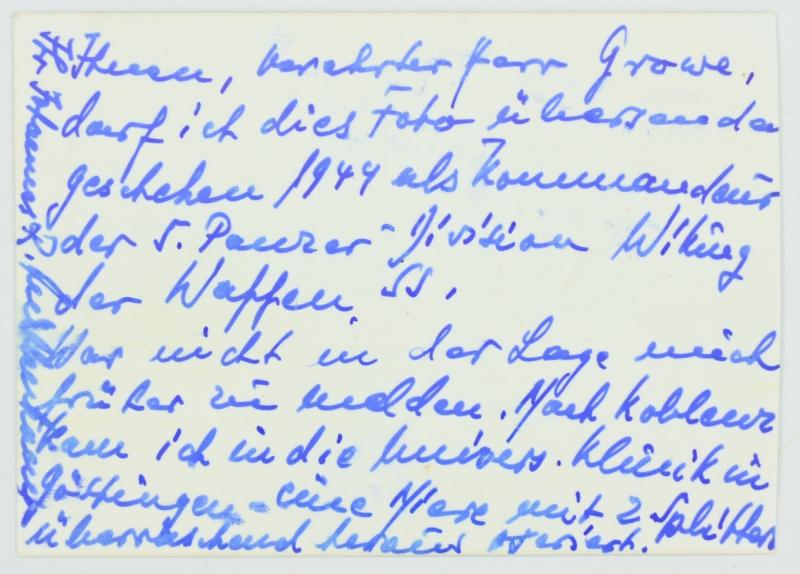 Ihnen, verehrter Herr Growe,
darf ich dies Foto übersenden
geschehen 1944 als Kommandeur
der 5. Panzer-Division Wiking
der Waffen SS.
War nicht in der Lage mich
früher zu melden. Nach Koblenz
kam ich in die Univers. Klinik in
Göttingen - eine Niere mit 2 Splittern
überraschend heraus operiert.
Ihr